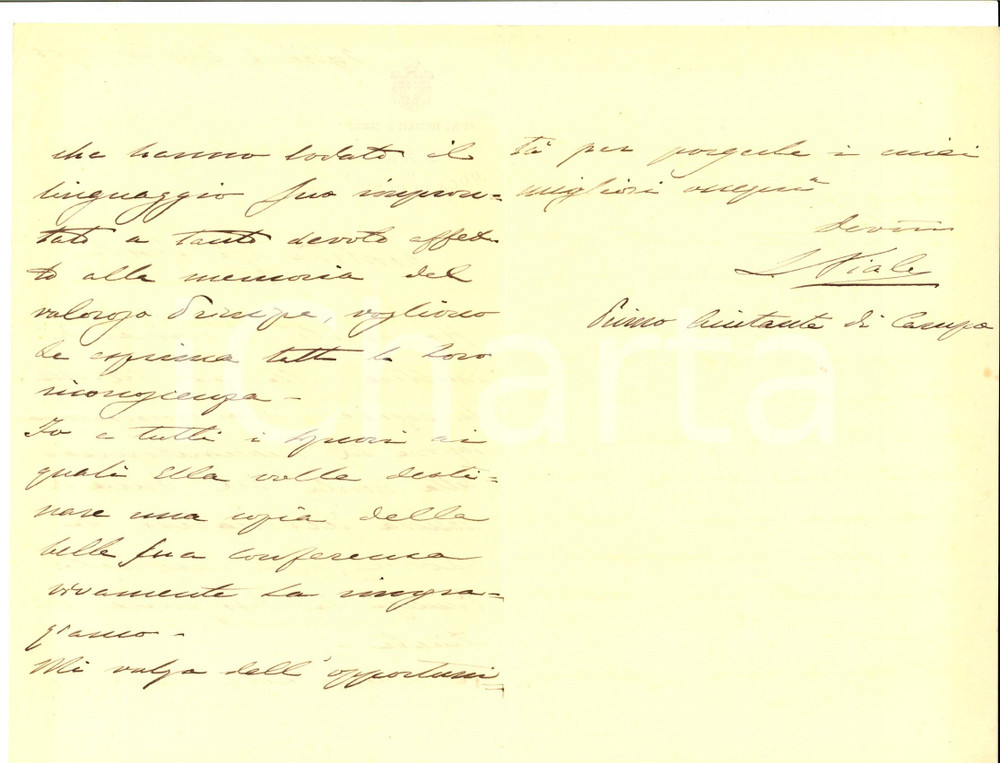 che hanno lodato il
linguaggio suo impron=
tato a tanto devoto affet=
to alla memoria del
valoroso Principe, vogliono
Le esprima tutta la loro
riconoscienza -
Io e tutti i signori ai
quali Ella volle desti=
nare una copia della
bella sua conferenza
vivamente La ringra=
ziamo -
Mi valgo dell'opportuni=
tà per porgerle i miei
migliori ossequi
Devmo
L Viale
Primo Aiutante di Campo
iCharta